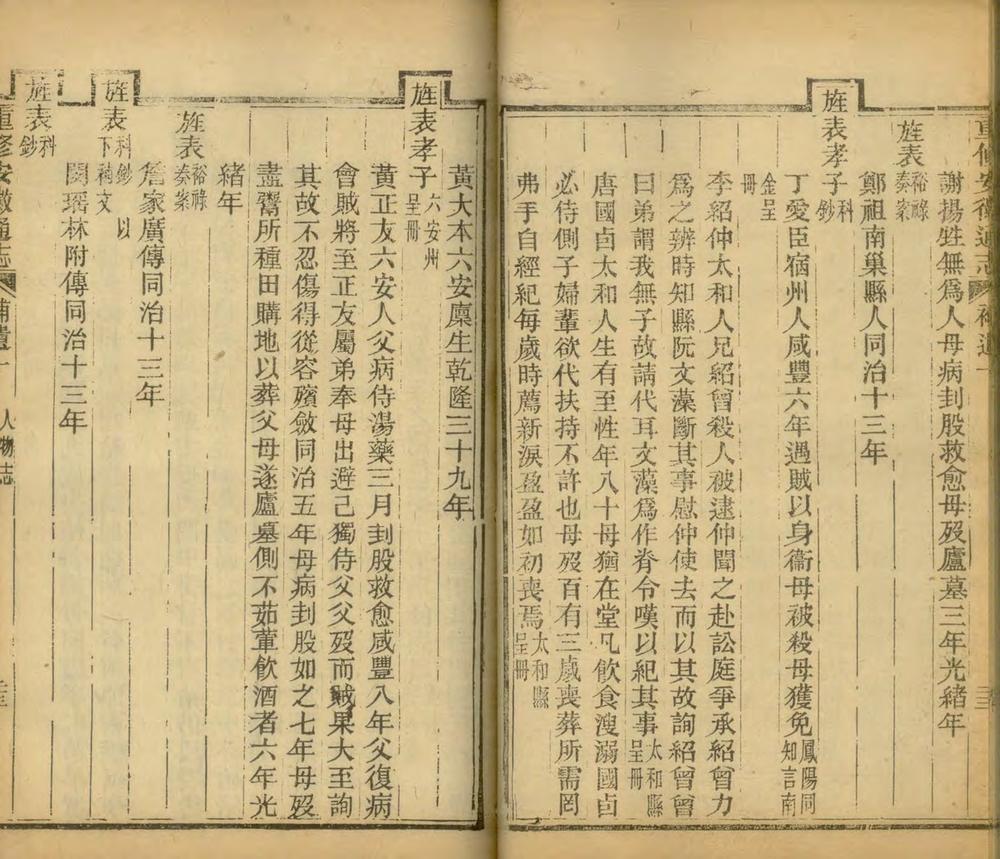 重修安徽通志 補遺一
謝揚甡無為人母病刲股救愈母歿廬墓三年光緒年
旌表裕祿奏案
鄭祖南巢縣人同治十三年
旌表孝子科鈔
丁愛臣宿州人咸豐六年遇賊以身衞母被殺母獲免鳳陽同知言南
金呈冊
李紹仲太和人兄紹曾殺人被逮仲聞之赴訟庭爭承紹曾力
爲之辨時知縣阮文藻斷其事慰仲使去而以其故詢紹曾曾
曰弟謂我無子故請代耳文藻爲作脊令嘆以紀其事太和縣呈冊
唐國卣太和人生有至性年八十母猶在堂凡飲食溲溺國卣
必侍側子婦輩欲代扶持不許也母歿百有三歲喪葬所需罔
弗手自經紀每歲時薦新淚盈盈如初喪焉太和縣呈冊
黃大本六安廩生乾隆三十九年
旌表孝子六安州呈冊
黃正友六安人父病侍湯藥三月刲股救愈咸豐八年父復病
會賊將至正友屬弟奉母出避己獨侍父父歿而賊果大至詢
其故不忍傷得從容殯斂同治五年母病刲股如之七年母歿
盡鬻所種田購地以葬父母遂廬墓側不茹葷飲酒者六年光
緒年
旌表裕祿奏案
詹家廣傳同治十三年
旌表科鈔以下補文
閔瑤林附傳同治十三年
旌表科鈔
重修安徽通志 補遺一 人物志